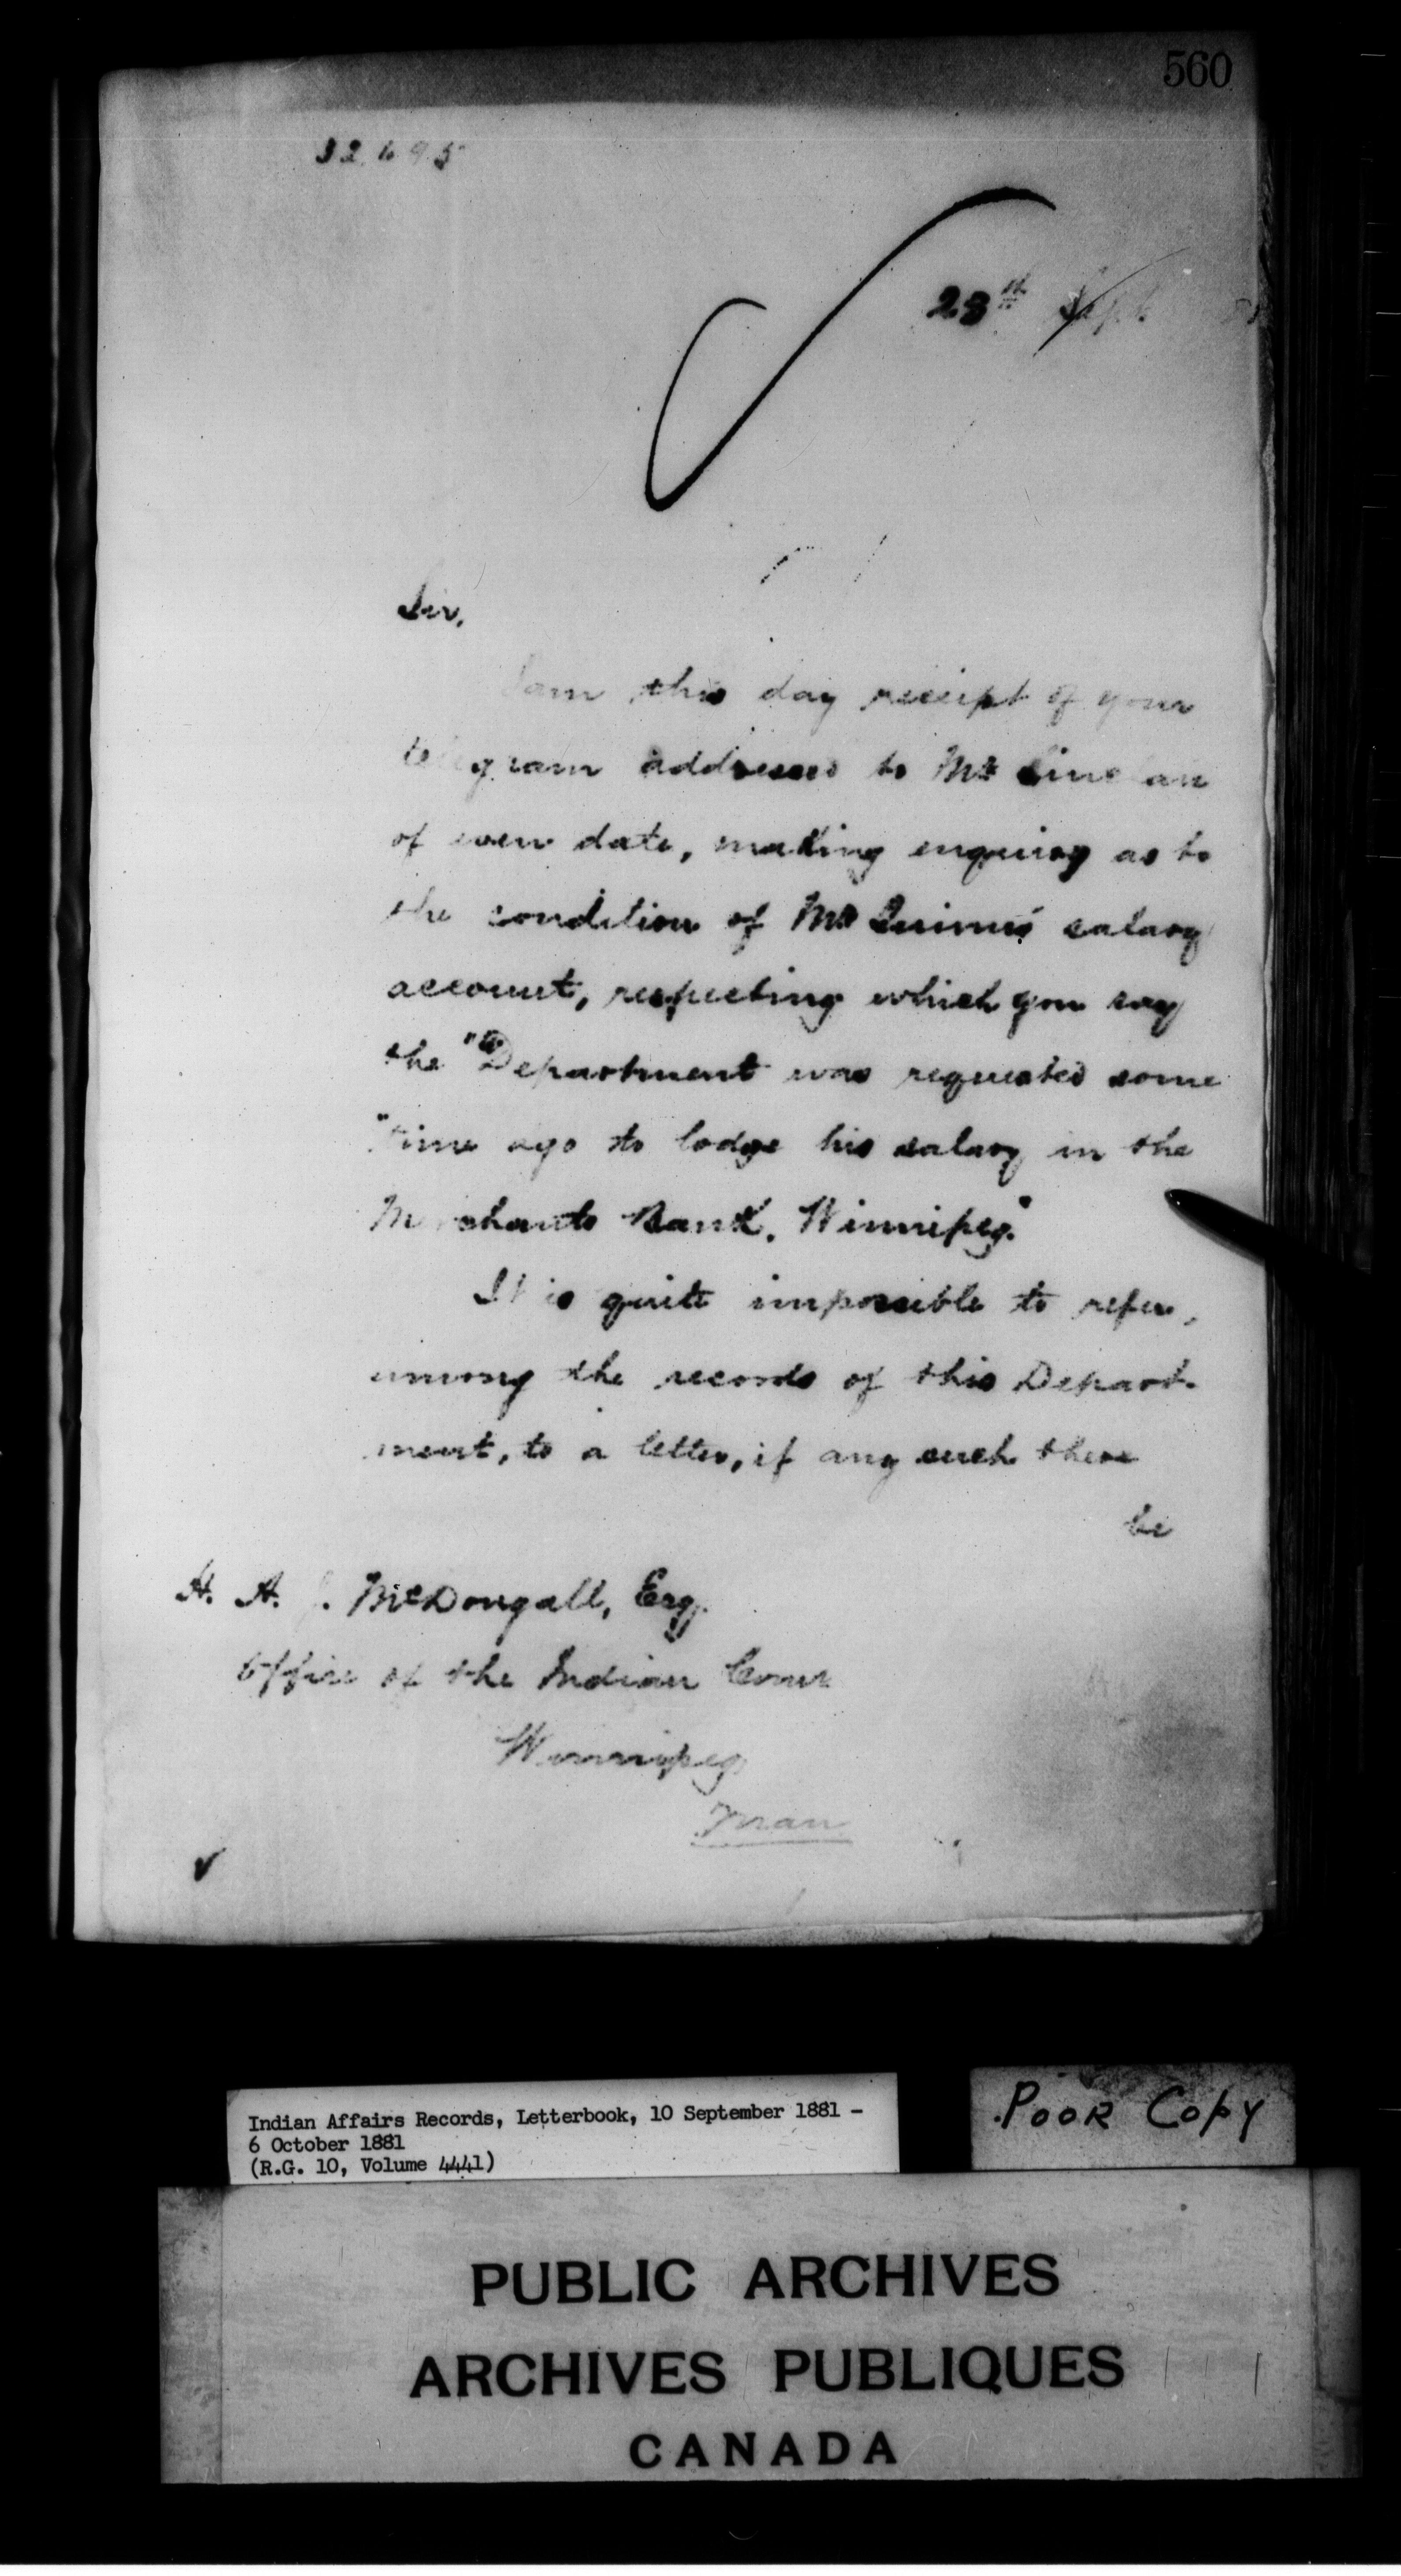 560
32,695
28th Sept 81
Sir,
I am this day receipt of your
telegram addressed to Mr Sinclair
of even date, making enquiry as to
the condition of Mr Quinn's salary
account, respecting which you say
the "Department was requested some
"time ago to lodge his salary in the
Merchants Bank, Winnipeg."
It is quite impossible to refer,
among the records of this Depart-
ment, to a letter, if any such there
be
H. A. McDougall, Esq.
Office of the Indian Comr
Winnipeg
Man
Indian Affairs Records, Letterbook, 10 September 1881 -
6 October 1881
(R.G. 10, Volume 4441)
POOR COPY
PUBLIC ARCHIVES
ARCHIVES PUBLIQUES
CANADA